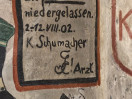 niedergelassen.
2.-12.VIII.02.
K. Schumacher
Arzt